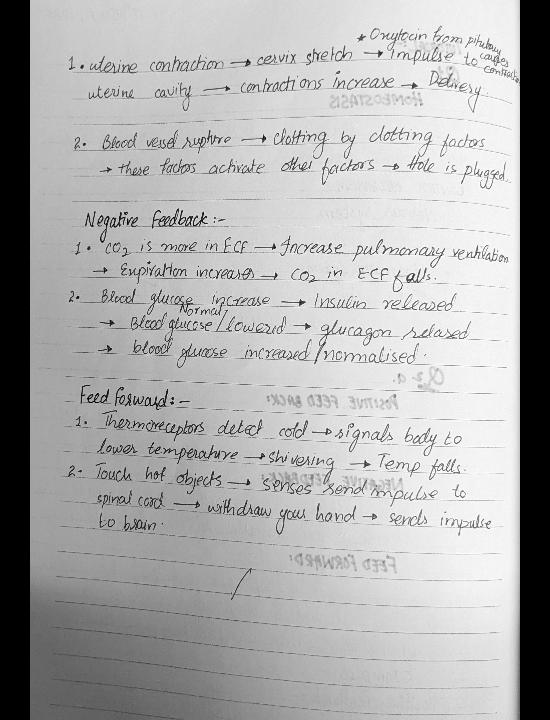 * Oxytocin from pitutary causes contraction
1. uterine contraction → cervix stretch → impulse to
uterine cavity → contractions increase → Delivery
HOMEOSTASIS
2. Blood vessel rupture → Clotting by clotting factors
→ these factors activate other factors → Hole is plugged.
Negative Feedback:-
1. CO2 is more in ECF → Increase pulmonary ventilation
→ Expiration increases → CO2 in ECF falls.
2. Blood glucose increase → Insulin released
→ Blood glucose Normal/lowered → glucagon relased
→ blood glucose increased/normalised.
POSITIVE FEED BACK:
Feed forward:-
1. Thermoreceptors detect cold → signals body to
lower temperature → shivering → Temp falls.
2. Touch hot objects → senses send impulse to
NEGATIVE
spinal cord → withdraw your hand → sends impulse
to brain.
FEED FORWARD: